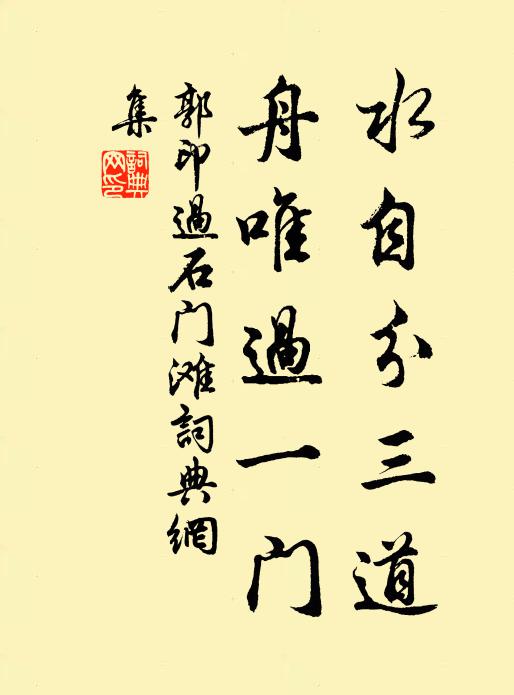 水自分三道
舟唯過一门
郭印過石门滩詞典網
集
詞典
网印